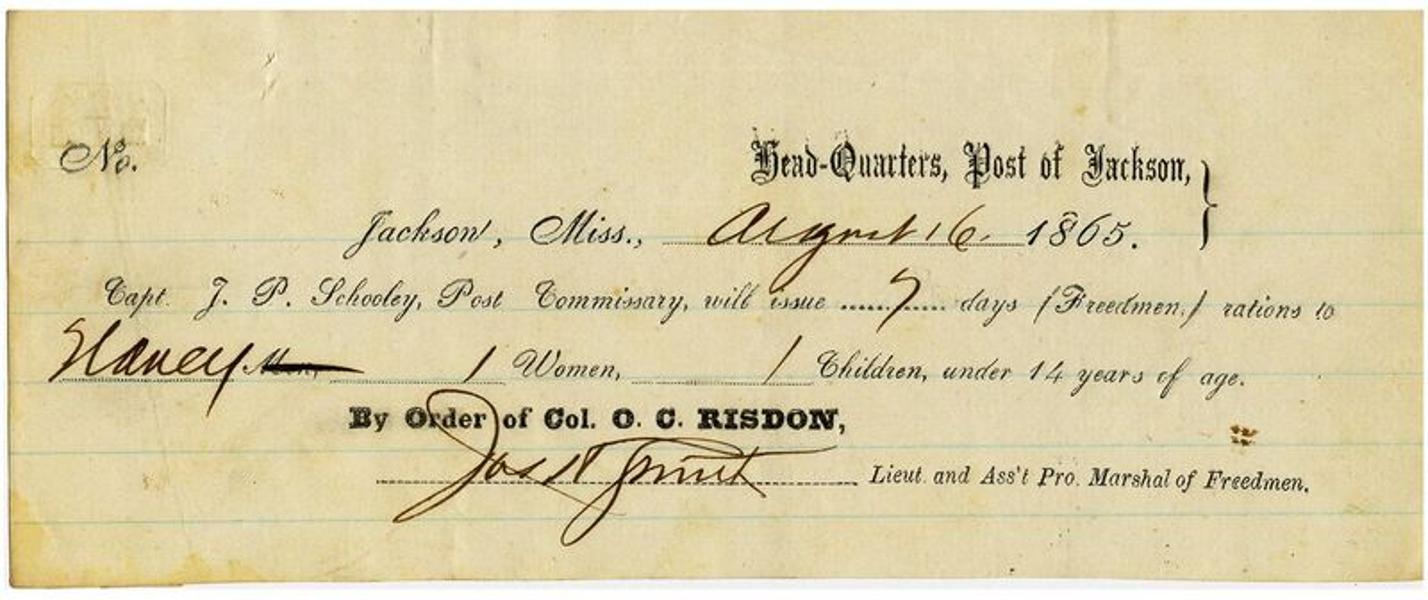 Head-Quarters, Post of Jackson,
No.
Jackson, Miss., August 16. 1865.
Capt. J. P. Schooley, Post Commissary, will issue ......7..... days (Freedmen,) rations to
Men, 1 Women, 1 Children, under 14 years of age.
By Order of Col. O. C. RISDON,
Lieut. and Ass't Pro. Marshal of Freedmen.